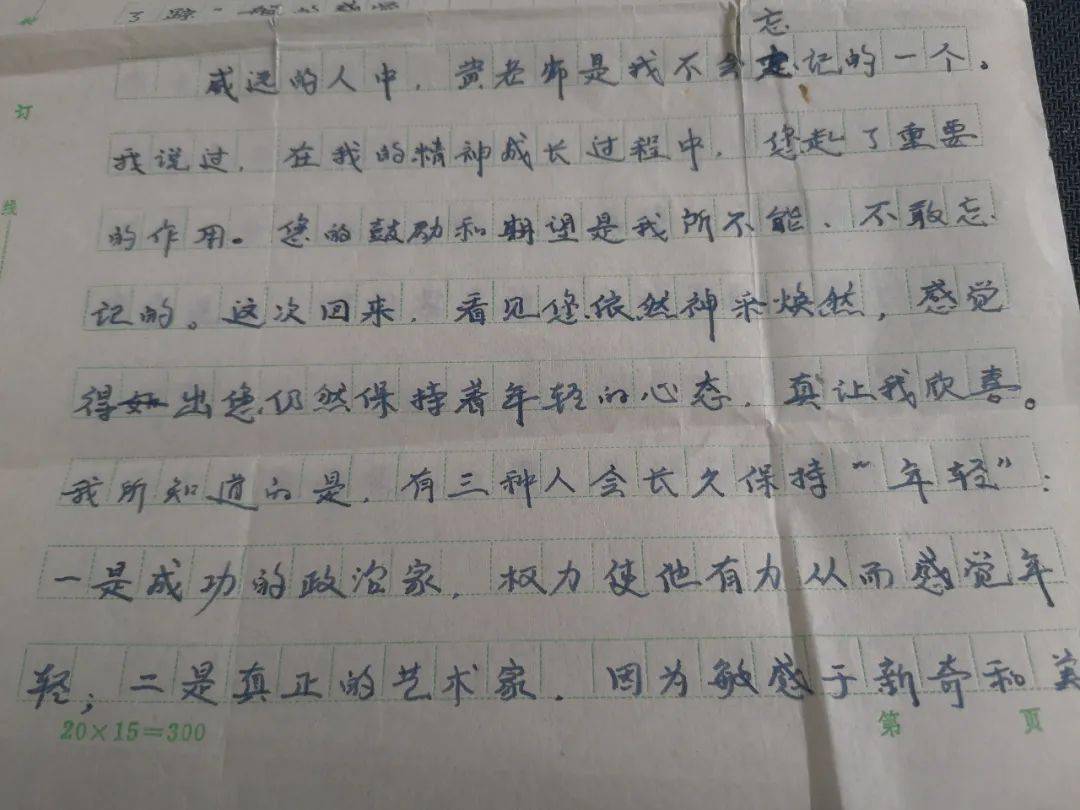 忘
咸远的人中，黄老师是我不会忘记的一个。
订
我说过，在我的精神成长过程中，您起了重要
线
的作用。您的鼓励和期望是我所不能、不敢忘
记的。这次回来，看见您依然神采焕然，感觉
得出您仍然保持着年轻的心态，真让我欣喜。
我所知道的是，有三种人会长久保持“年轻”：
一是成功的政治家，权力使他有力从而感觉年
轻；二是真正的艺术家，因为敏感于新奇和美
20×15=300
第 页